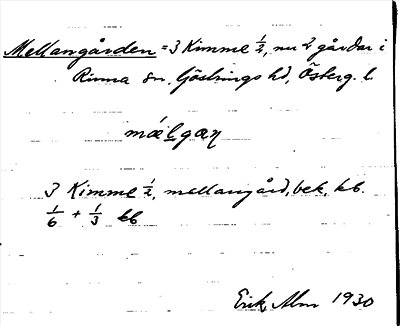 Mellangården = 3 Kimme ½, nu 2 gårdar i
Rinna sn. Göstrings hd, Österg. l.
mǽlgæɳ
3 Kimme ½, mellangård, bek. kb.
1/6 + 1/3 kb
Erik Alm 1930